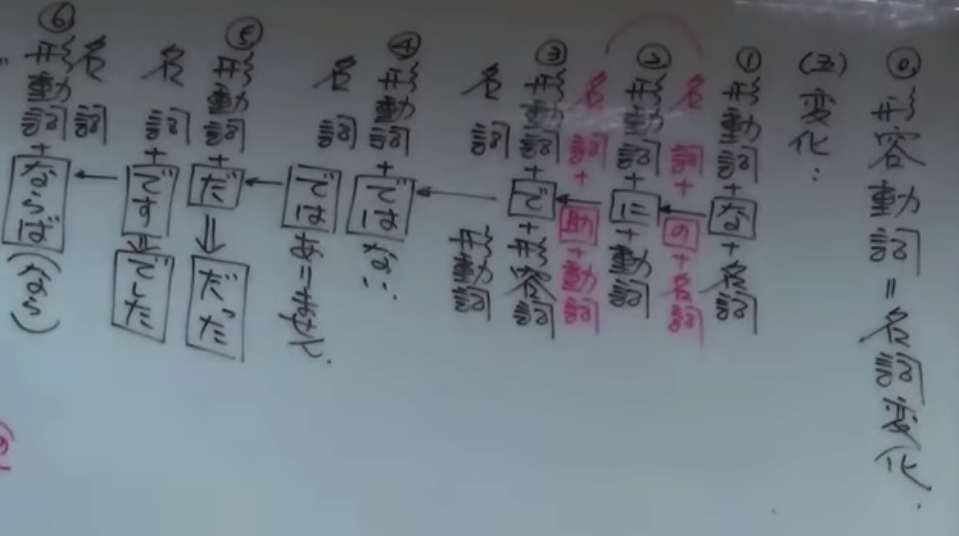 ◎形容動詞=名詞変化.
変化:
①形動詞+な+名詞
名詞+の+名詞
②形動詞+に+動詞
名詞+助+動詞
③形動詞+で+形容詞
名詞 形動詞
④形動詞+では
名詞 では
⑤形動詞+だ⇒だった
名詞+です⇒でした
名詞
⑥形動詞+ならば(なら)